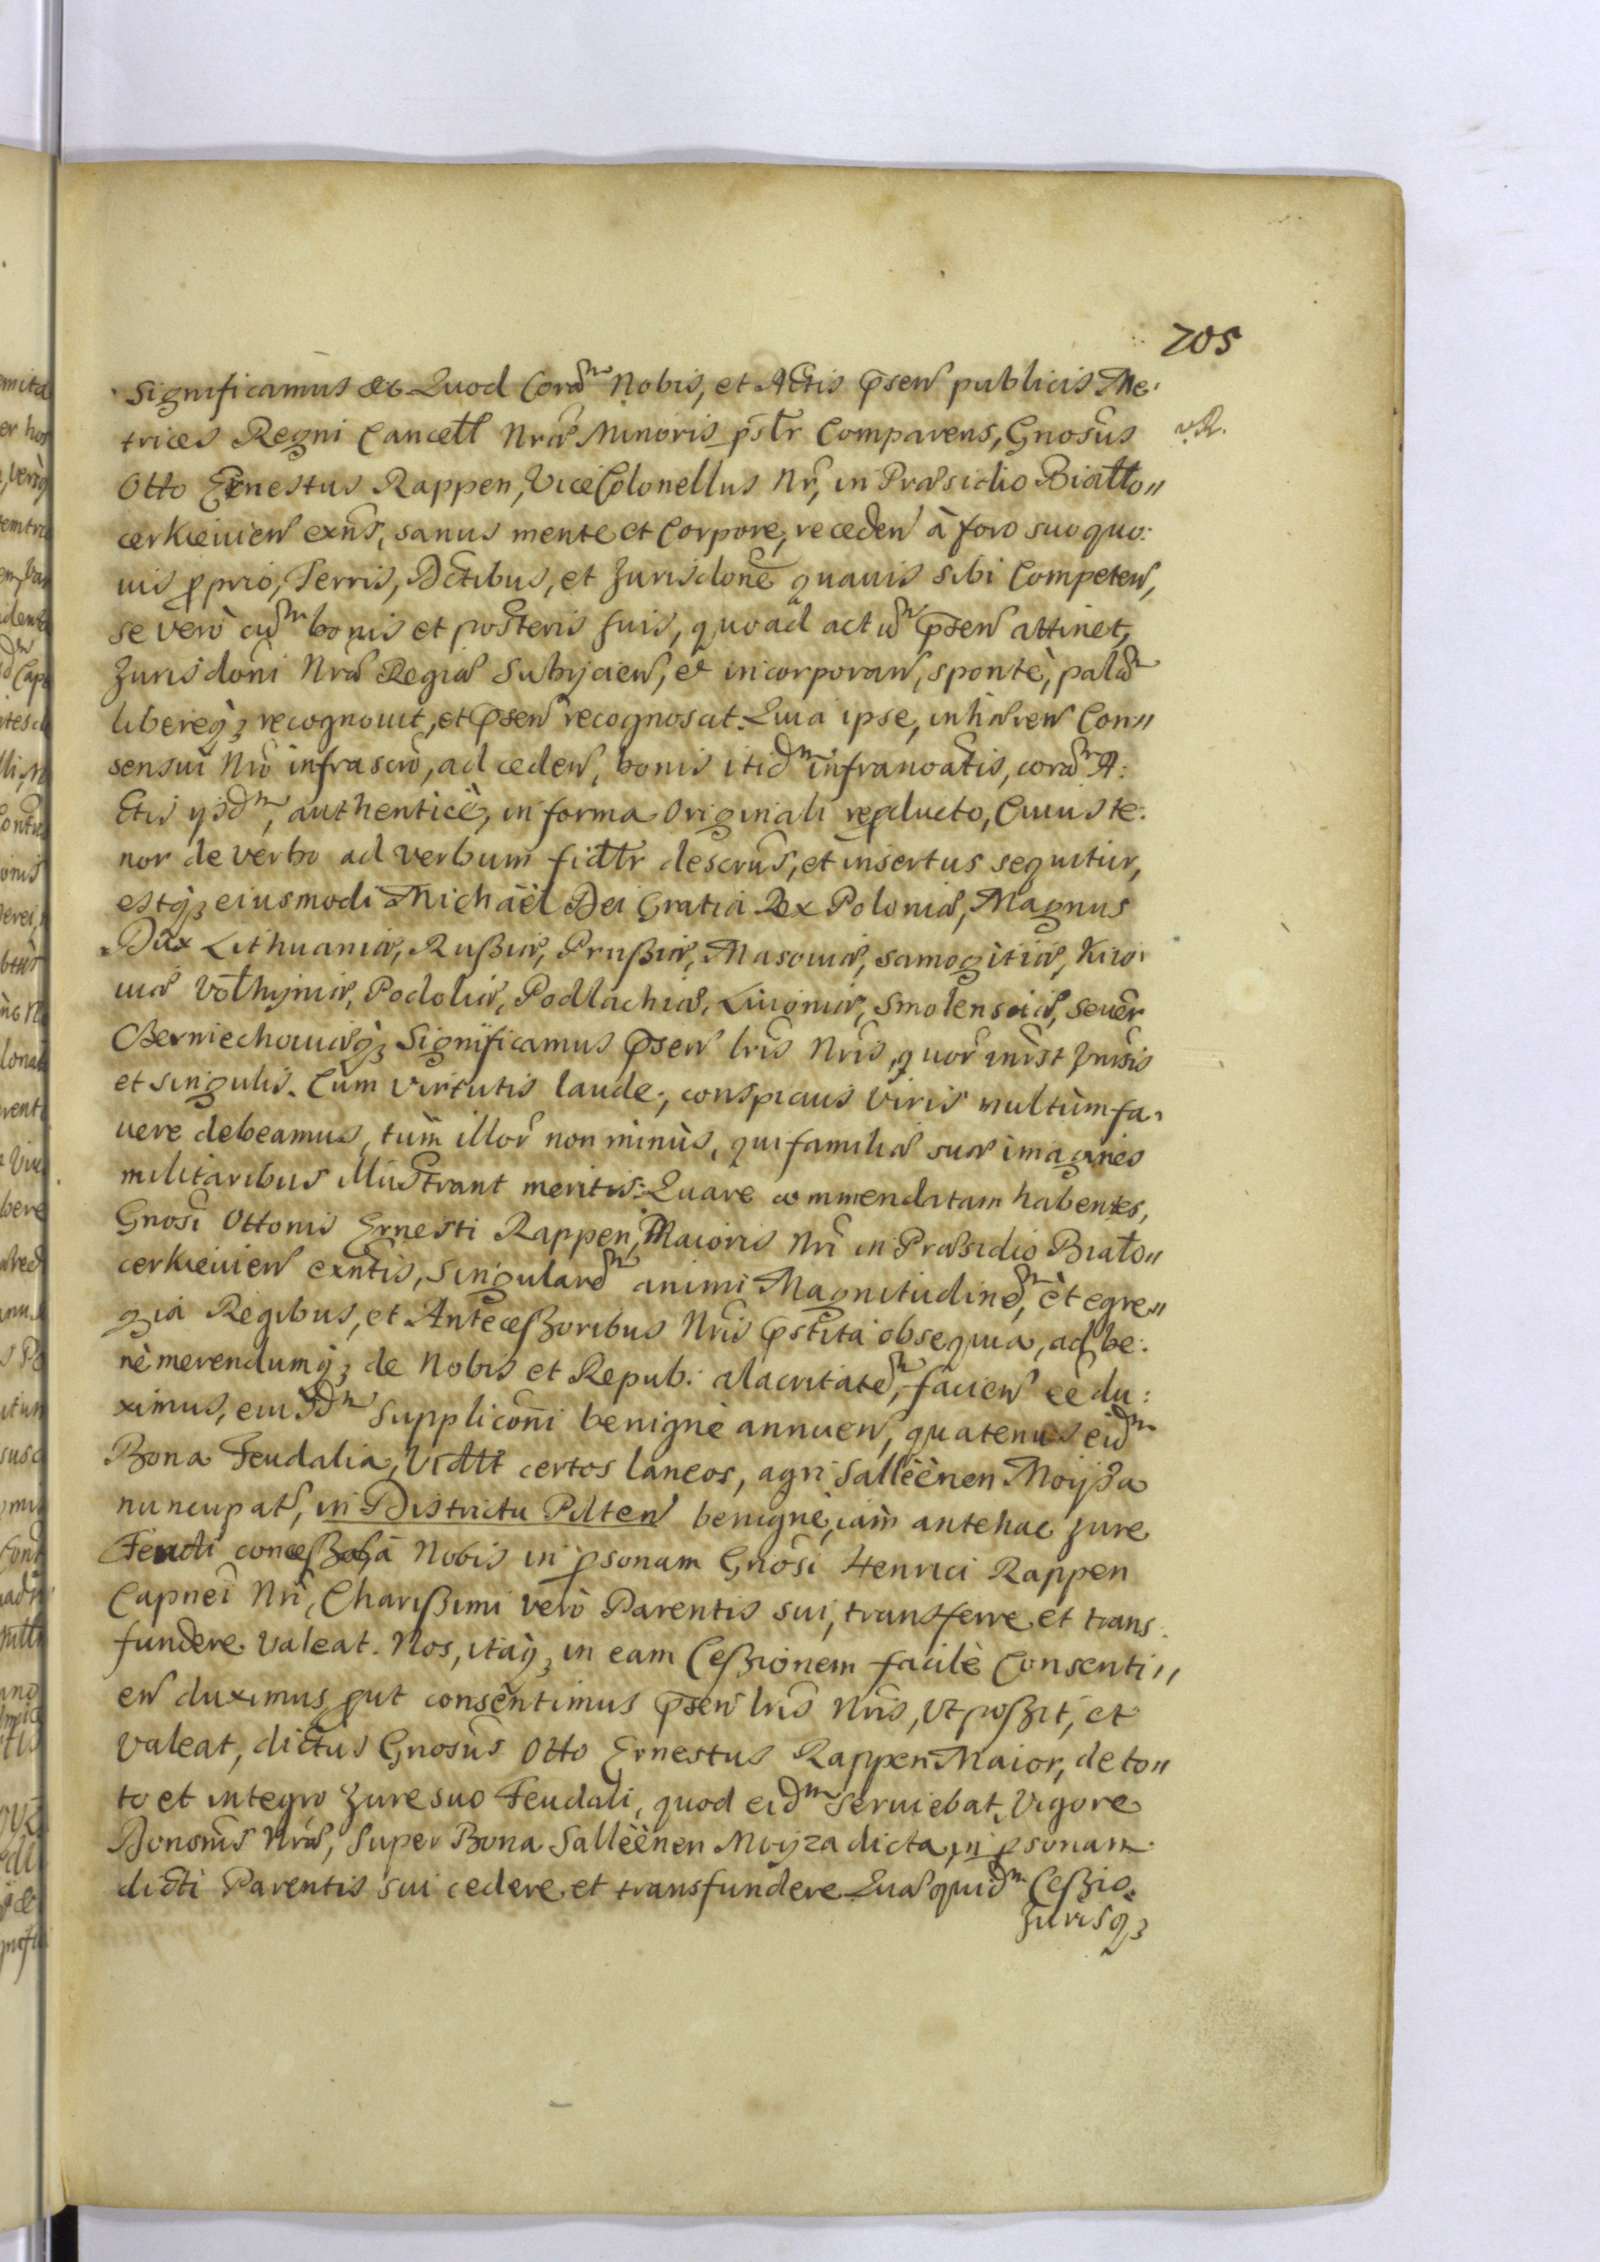 705
Significamus &c Quod Corã Nobis, et Actis p̃sen̄ publicis Me:
trices Regni Cancell Nræ Minoris p̃sl̃r Comparens, Gnosus
v. R.
Otto Ernestus Rappen, Vice Colonellus Nr̃, in Præsidio Biallo„
cerkieuien̄ exñs, sanus mente et Corpore, receden̄ à foro suo quo:
uis pprio, Terris, Dctibus, et Jurisdone quauis sibi Competen̄,
se verò cũ bonis et posteris suis, quoad actũ p̃sen̄ attinet,
Jurisdoni Nræ Regiæ Subijcien̄, et incorporan̄, spontè, palã
libereq̃ recognouit, et p̃sen̄ recognoscit. Quia ipse, inhæren̄ Con„
sensui Nrõ infrascrõ, ad ceden̄, bonis itid̃ infranoatis, corã A:
ctis ijsd̃, authenticè, in forma Originali repducto, Cuius te:
nor de verbo ad verbum fidlr descrũs, et insertus sequitur,
estq̃ eiusmodi Michaël Dei Gratia Rex Poloniæ, Magnus
Dux Lithuaniæ, Rußiæ, Prußiæ, Masouiæ, Samogitiæ, Kijo:
uiæ Volhyniæ, Podoliæ, Podlachiæ, Liuoniæ, Smolensciæ, Seueř
Czerniechouiæq̃ Significamus p̃sen̄ lris Nris, quor̃ inrst Vnisis
et singulis. Cum virtutis laude, conspicuis Viris multùm fa:
uere debeamus, tùm illor̃ non minùs, qui familiæ suæ imagines
militaribus illustrant meritis: Quare commendatam habentes,
Gnosi Ottonis Ernesti Rappen, Maioris Nri in Præsidio Biało„
cerkieuien̄ exntis, Singularẽ animi Magnitudinẽ, et egre„
gia Regibus, et Anteceßoribus Nris p̃stita obsequia, ad be:
nè merendumq̃ de Nobis et Repub: alacritatẽ, facien̄ eê du:
ximus, eiusd̃ Supplicõni benignè annuen̄, quatenus eid̃
Bona Feudalia, Vidlt certos laneos, agri Sallëènen Moyza
nuncupat, in Districtu Pilten̄ benignè, iàm antehac jure
Feudi conceß à Nobis in psonam Gnosi Henrici Rappen
Capnei Nri, Charißimi verò Parentis sui, transferre et trans:
fundere valeat. Nos, itaq̃ in eam Ceßionem facilè Consenti„
en̄ duximus put consentimus p̃sen̄ lris Nris, Vt poßit, et
valeat, dictus Gnosus Otto Ernestus Rappen Maior, de to„
to et integro Jure suo Feudali, quod eid̃ seruiebat, vigore
Donsnis Nræ, super Bona Sallëènen Moyza dicta, in psonam
dicti Parentis sui cedere et transfundere. Quæ quid̃ Ceßio
Jurisq̃